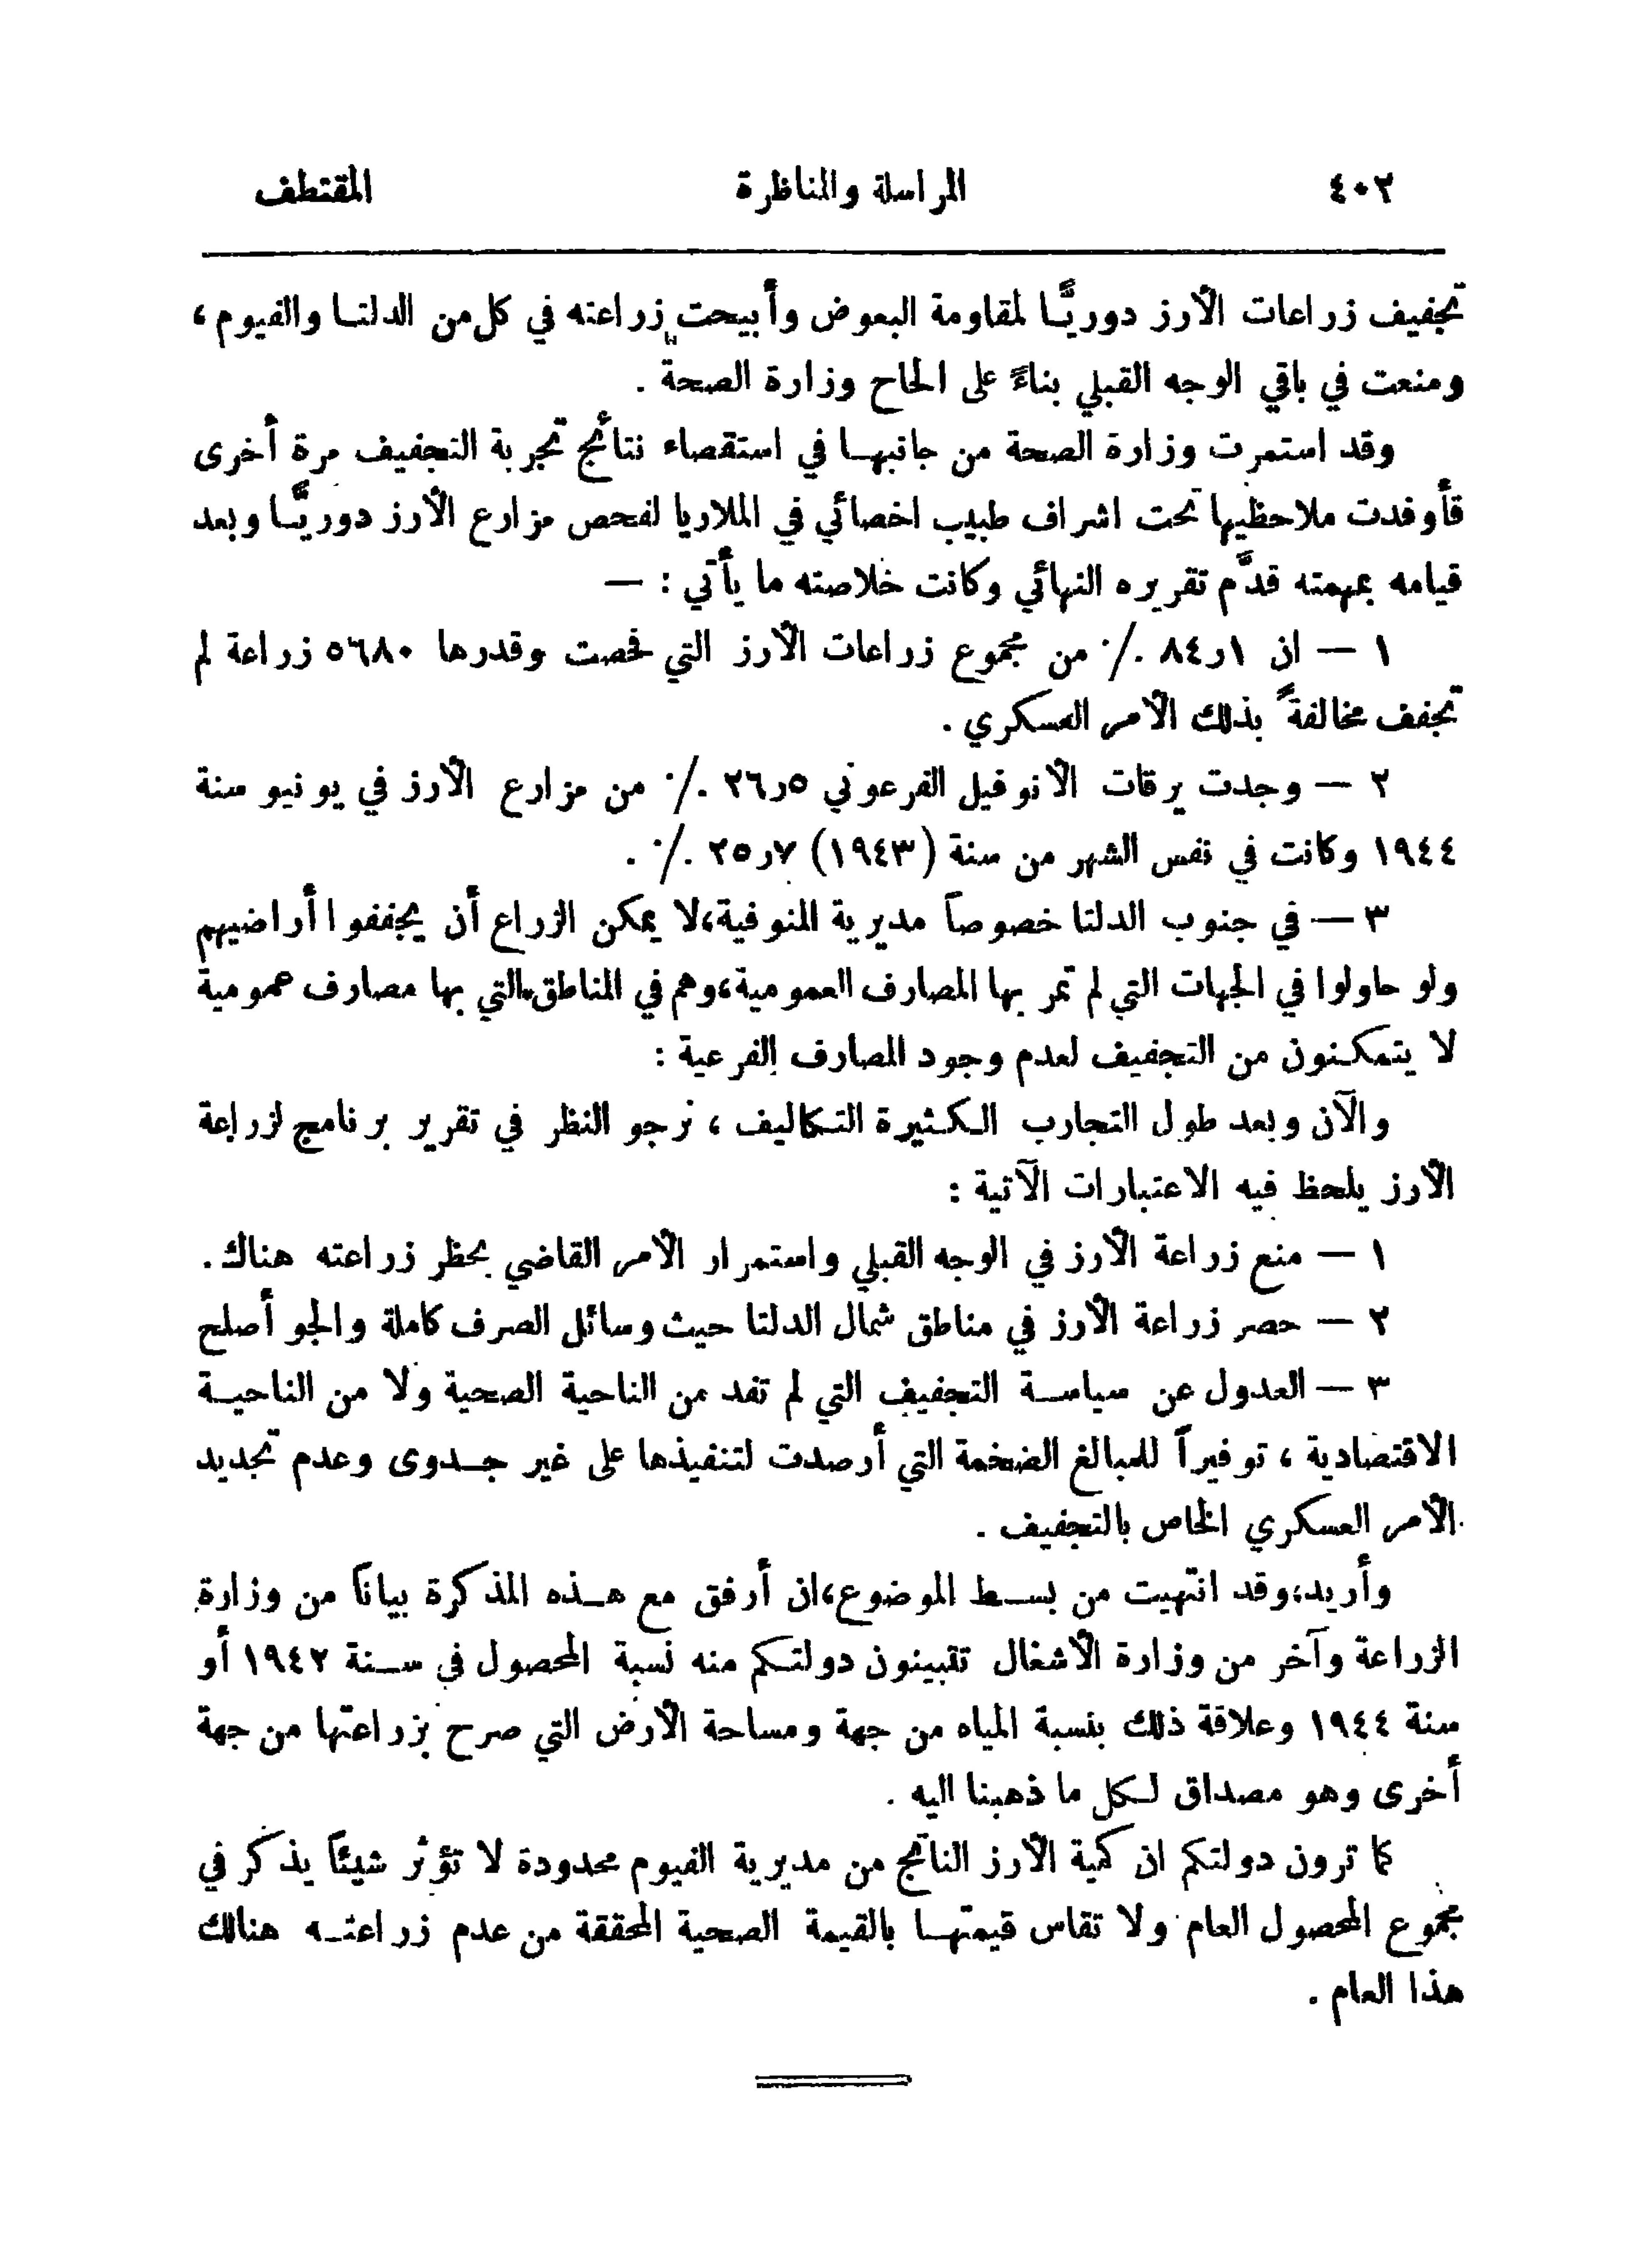 ٤٠٢ المراسلة والمناظرة المقتطف
تجفيف زراعات الأرز دوريًّا لمقاومة البعوض وأبيحت زراعته في كل من الدلتا والفيوم ،
ومنعت في باقي الوجه القبلي بناءً على الحاح وزارة الصحة .
وقد استمرت وزارة الصحة من جانبها في استقصاء نتائج تجربة التجفيف مرة أخرى
فأوفدت ملاحظيها تحت اشراف طبيب اخصائي في الملاريا لفحص مزارع الأرز دوريًّا وبعد
قيامه بمهمته قدَّم تقريره النهائي وكانت خلاصته ما يأتي : —
١ — ان ١ر٨٤ ./· من مجموع زراعات الأرز التي فحصت وقدرها ٥٦٨٠ زراعة لم
تجفف مخالفةً بذلك الأمر العسكري .
٢ — وجدت يرقات الأنوفيل الفرعوني ٥ر٢٦ ./· من مزارع الأرز في يونيو سنة
١٩٤٤ وكانت في نفس الشهر من سنة (١٩٤٣) ٧ر٢٥ ./· .
٣ — في جنوب الدلتا خصوصاً مديرية المنوفية، لا يمكن الزراع أن يجففوا أراضيهم
ولو حاولوا في الجهات التي لم تمر بها المصارف العمومية، وهم في المناطق التي بها مصارف عمومية
لا يتمكنون من التجفيف لعدم وجود المصارف الفرعية :
والآن وبعد طول التجارب الكثيرة التكاليف ، نرجو النظر في تقرير برنامج لزراعة
الأرز يلحظ فيه الاعتبارات الآتية :
١ — منع زراعة الأرز في الوجه القبلي واستمرار الأمر القاضي بحظر زراعته هناك .
٢ — حصر زراعة الأرز في مناطق شمال الدلتا حيث وسائل الصرف كاملة والجو أصلح
٣ — العدول عن سياسة التجفيف التي لم تفد من الناحية الصحية ولا من الناحية
الاقتصادية ، توفيراً للمبالغ الضخمة التي أرصدت لتنفيذها على غير جدوى وعدم تجديد
الأمر العسكري الخاص بالتجفيف .
وأريد، وقد انتهيت من بسط الموضوع، ان أرفق مع هذه المذكرة بياناً من وزارة
الزراعة وآخر من وزارة الأشغال تتبينون دولتكم منه نسبة المحصول في سنة ١٩٤٢ أو
سنة ١٩٤٤ وعلاقة ذلك بنسبة المياه من جهة ومساحة الأرض التي صرح بزراعتها من جهة
أخرى وهو مصداق لكل ما ذهبنا اليه .
كما ترون دولتكم ان كمية الأرز الناتج من مديرية الفيوم محدودة لا تؤثر شيئاً يذكر في
مجموع المحصول العام ولا تقاس قيمتها بالقيمة الصحية المحققة من عدم زراعته هنالك
هذا العام .